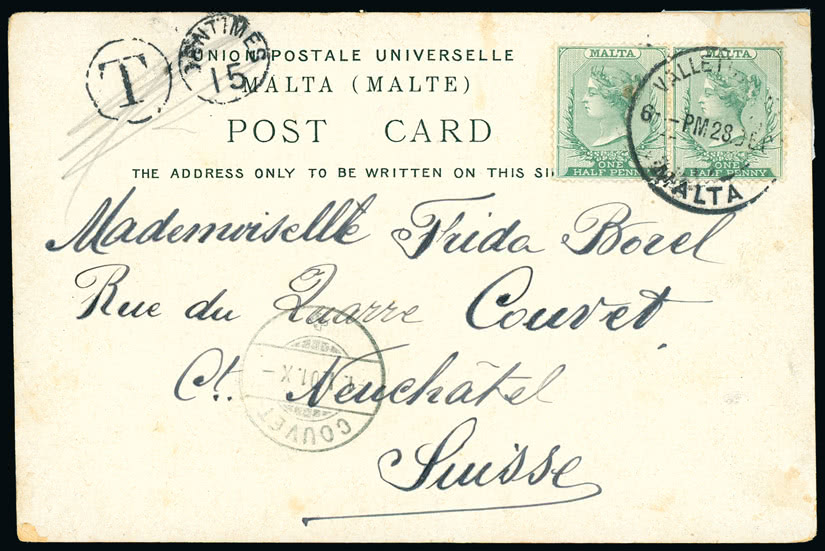 T
CENTIMES
15
UNION POSTALE UNIVERSELLE
MALTA (MALTE)
POST CARD
THE ADDRESS ONLY TO BE WRITTEN ON THIS
MALTA
ONE
HALF PENNY
MALTA
ONE
HALF PENNY
PM 28
MALTA
Mademoiselle Frida Borel
Rue du Quarre Couvet
Ct. Neuchâtel
Suisse
01.X-
COUVET